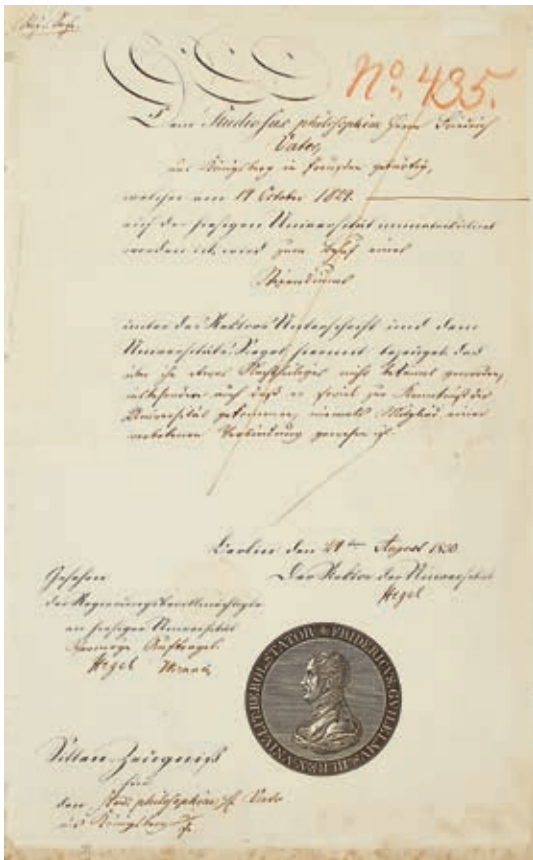 No. 435.
Dem Studiosus philosophiae Herrn Friedrich
Vater,
aus Königsberg in Preußen gebürtig,
welcher am 19 October 1829.
auf der hiesigen Universität immatriculirt
worden ist, wird zum Behuf eines
Stipendiums
unter des Rektors Unterschrift und dem
Universitäts-Siegel hiermit bezeugt, daß
über ihn etwas Nachtheiliges nicht bekannt geworden,
insbesondere auch daß er soviel zur Kenntniß der
Universität gekommen, niemals Mitglied einer
verbotenen Verbindung gewesen ist.
Berlin den 21ten August 1830.
Der Rektor der Universität
Hegel
Gesehen
der Regierungsbevollmächtigte
an hiesiger Universität
Hegel
FRIDERICVS GVILELMVS III REX VNIV LIT BEROL STATOR
Sitten-Zeugniß
für
den Stud philosophiae H. Vater
aus Königsberg i/Pr.